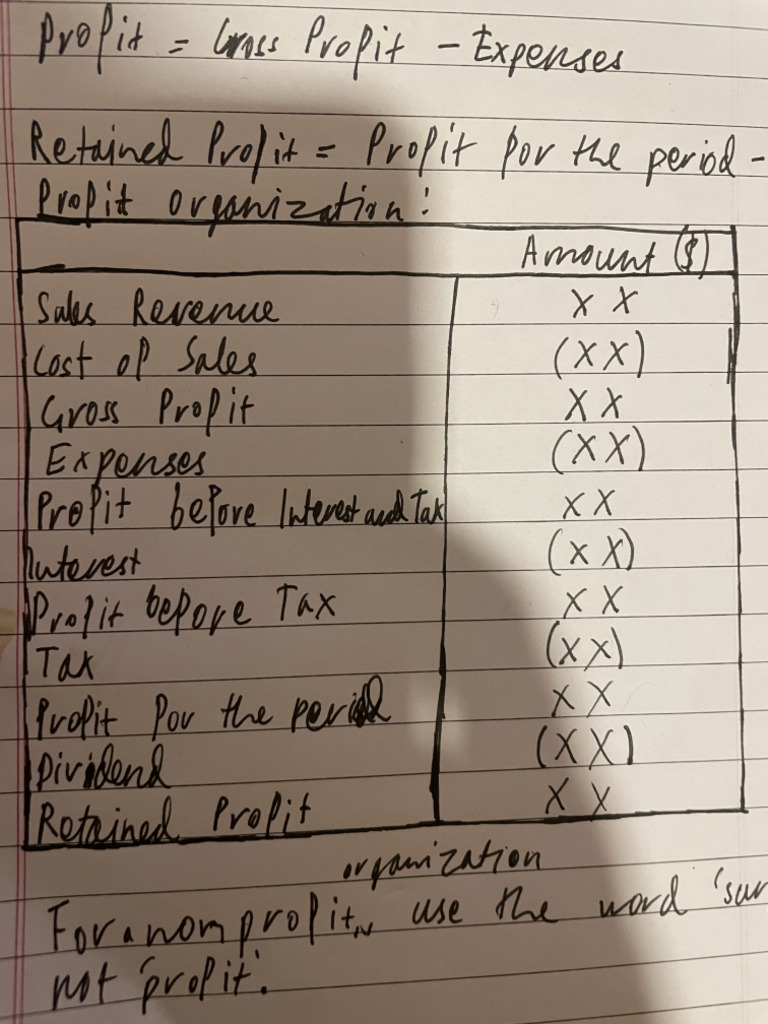 Profit = Gross Profit - Expenses
Retained Profit = Profit for the period -
Profit organization:
Amount ($)
Sales Revenue X X
Cost of Sales (X X)
Gross Profit X X
Expenses (X X)
Profit before Interest and Tax X X
Interest (X X)
Profit before Tax X X
Tax (X X)
Profit for the period X X
Dividend (X X)
Retained Profit X X
organization
For a non profit, use the word 'sur
not 'profit'.